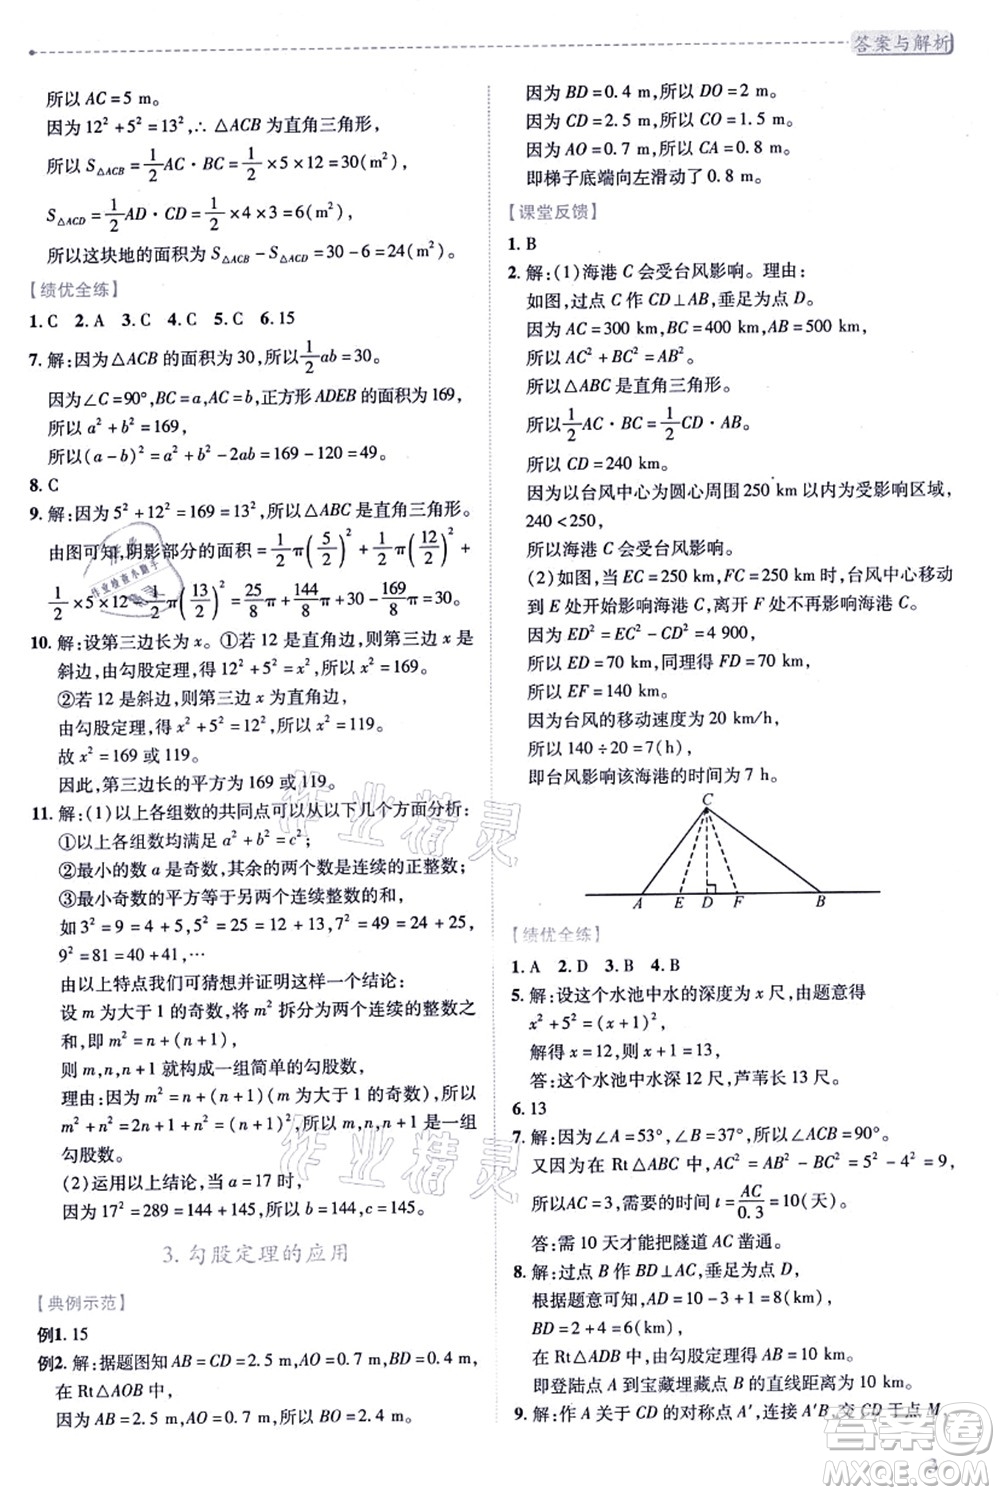 答案与解析
所以 AC=5 m。
因为 12²+5²=13²,∴ △ACB 为直角三角形,
所以 S△ACB=1/2 AC·BC=1/2×5×12=30(m²),
S△ACD=1/2 AD·CD=1/2×4×3=6(m²),
所以这块地的面积为 S△ACB-S△ACD=30-6=24(m²)。
【绩优全练】
1. C 2. A 3. C 4. C 5. C 6. 15
7. 解:因为△ACB 的面积为 30,所以 1/2 ab=30。
因为∠C=90°,BC=a,AC=b,正方形 ADEB 的面积为 169,
所以 a²+b²=169,
所以(a-b)²=a²+b²-2ab=169-120=49。
8. C
9. 解:因为 5²+12²=169=13²,所以△ABC 是直角三角形。
由图可知,阴影部分的面积=1/2 π(5/2)²+1/2 π(12/2)²+
1/2×5×12-1/2 π(13/2)²=25/8 π+144/8 π+30-169/8 π=30。
10. 解:设第三边长为 x。①若 12 是直角边,则第三边 x 是
斜边,由勾股定理,得 12²+5²=x²,所以 x²=169。
②若 12 是斜边,则第三边 x 为直角边,
由勾股定理,得 x²+5²=12²,所以 x²=119。
故 x²=169 或 119。
因此,第三边长的平方为 169 或 119。
11. 解:(1)以上各组数的共同点可以从以下几个方面分析:
①以上各组数均满足 a²+b²=c²;
②最小的数 a 是奇数,其余的两个数是连续的正整数;
③最小奇数的平方等于另两个连续整数的和,
如 3²=9=4+5,5²=25=12+13,7²=49=24+25,
9²=81=40+41,…
由以上特点我们可猜想并证明这样一个结论:
设 m 为大于 1 的奇数,将 m² 拆分为两个连续的整数之
和,即 m²=n+(n+1),
则 m,n,n+1 就构成一组简单的勾股数,
理由:因为 m²=n+(n+1)(m 为大于 1 的奇数),
m²+n²=2n+1+n²=(n+1)²,所以 m,n,n+1 是一组
勾股数。
(2)运用以上结论,当 a=17 时,
因为 17²=289=144+145,所以 b=144,c=145。
3. 勾股定理的应用
【典例示范】
例1. 15
例2. 解:据题图知 AB=CD=2.5 m,AO=0.7 m,BD=0.4 m,
在 Rt△AOB 中,
因为 AB=2.5 m,AO=0.7 m,所以 BO=2.4 m。
因为 BD=0.4 m,所以 DO=2 m。
因为 CD=2.5 m,所以 CO=1.5 m。
因为 AO=0.7 m,所以 CA=0.8 m。
即梯子底端向左滑动了 0.8 m。
【课堂反馈】
1. B
2. 解:(1)海港 C 会受台风影响。理由:
如图,过点 C 作 CD⊥AB,垂足为点 D。
因为 AC=300 km,BC=400 km,AB=500 km,
所以 AC²+BC²=AB²。
所以△ABC 是直角三角形。
所以 1/2 AC·BC=1/2 CD·AB。
所以 CD=240 km。
因为以台风中心为圆心周围 250 km 以内为受影响区域,
240<250,
所以海港 C 会受台风影响。
(2)如图,当 EC=250 km,FC=250 km 时,台风中心移动
到 E 处开始影响海港 C,离开 F 处不再影响海港 C。
因为 ED²=EC²-CD²=4 900,
所以 ED=70 km,同理得 FD=70 km,
所以 EF=140 km。
因为台风的移动速度为 20 km/h,
所以 140÷20=7(h),
即台风影响该海港的时间为 7 h。
C
A E D F B
【绩优全练】
1. A 2. D 3. B 4. B
5. 解:设这个水池中水的深度为 x 尺,由题意得
x²+5²=(x+1)²,
解得 x=12,则 x+1=13,
答:这个水池中水深 12 尺,芦苇长 13 尺。
6. 13
7. 解:因为∠A=53°,∠B=37°,所以∠ACB=90°。
又因为在 Rt△ABC 中,AC²=AB²-BC²=5²-4²=9,
所以AC=3,需要的时间 t=AC/0.3=10(天)。
答:需 10 天才能把隧道 AC 凿通。
8. 解:过点 B 作 BD⊥AC,垂足为点 D,
根据题意可知,AD=10-3+1=8(km),
BD=2+4=6(km),
在 Rt△ADB 中,由勾股定理得 AB=10 km。
即登陆点 A 到宝藏埋藏点 B 的直线距离为 10 km。
9. 解:作 A 关于 CD 的对称点 A′,连接 A′B,交 CD 于点 M,
作业检查小助手
作业精灵
作业精灵
答案圈
MXQE.COM